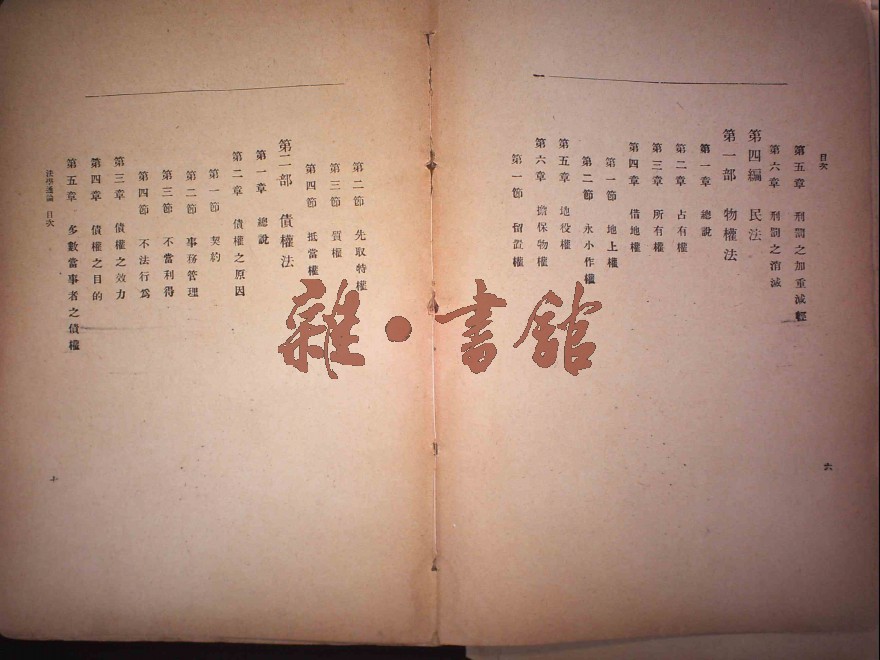 目次
第五章 刑罰之加重減輕
第六章 刑罰之消滅
第四編 民法
第一部 物權法
第一章 總說
第二章 占有權
第三章 所有權
第四章 借地權
第一節 地上權
第二節 永小作權
第五章 地役權
第六章 擔保物權
第一節 留置權
六
第二節 先取特權
第三節 質權
第四節 抵當權
第二部 債權法
第一章 總說
第二章 債權之原因
第一節 契約
第二節 事務管理
第三節 不當利得
第四節 不法行爲
第三章 債權之效力
第四章 債權之目的
第五章 多數當事者之債權
法學通論 目次
雜·書館